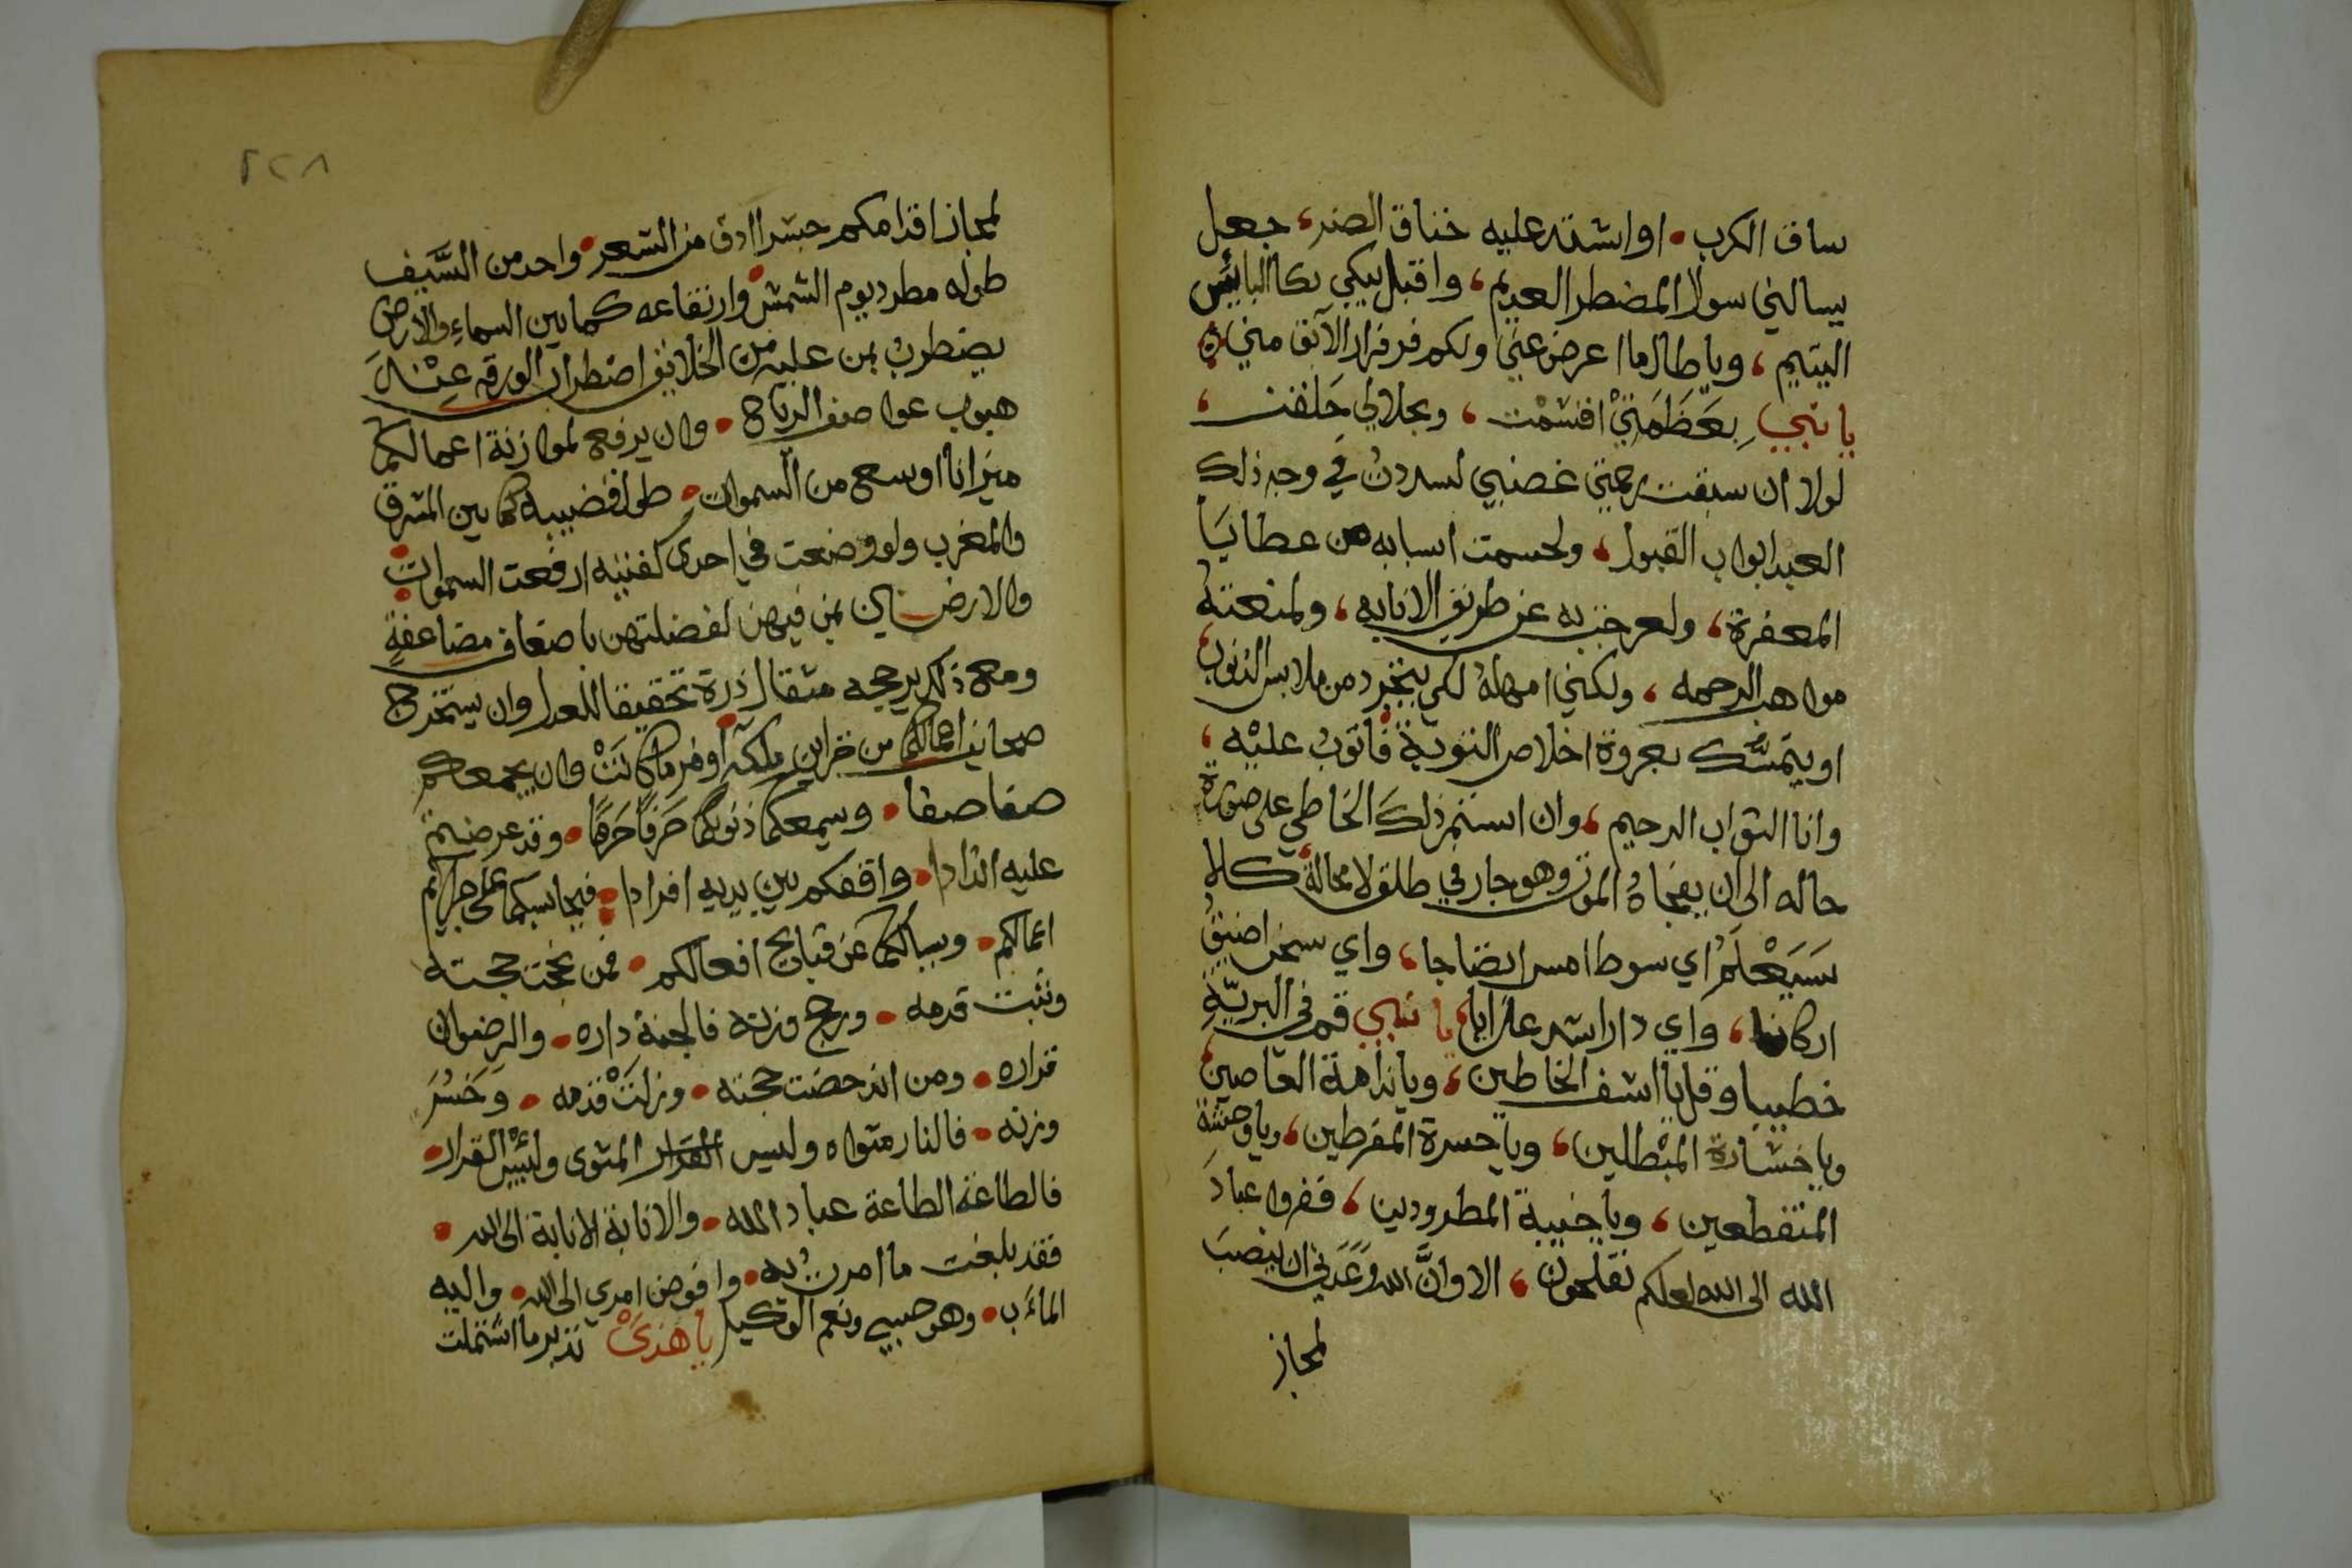 ساق الكرب • او اشتد عليه خناق الضر، جعل
يسالني سوال المضطر العديم، واقبل يبكي بكا البايس
اليتيم، ويا طال ما اعرض عني ولكم فر فرار الآبق مني
يا نبي بِعَظَمَتِي اقسَمْت، وبجلالي حَلفت،
لولا ان سبقت رحمتي غضبي لسددتُ في وجه ذلك
العبد ابواب القبول، ولحسمت اسبابه من عطايَا
المغفرة، ولعرجت به عن طريق الانابه، ولمنعته
مواهب الرحمه، ولكني امهلهُ لكي يتجرد من ملابس الذنوب
او يتمسَّك بعروة اخلاص التوبة فاتوبُ عليْه،
وانا التواب الرحيم، وان استمر ذلكَ الخاطي على صورة
حاله الى ان يفجاهُ الموت وهو جار في طلق لا محالة كلا
سَيَعْلَمُ اي سوط امس انضاجا، واي سجن اضيقُ
اركانا، واي دار اشد عذابا، يا نبي قم في البريّةِ
خطيبا وقل يا اسف الخاطين، ويا ندامة العاصين
ويا خسَارة المبْطلين، ويا حسرة المفرطين، ويا وحشة
المنقطعين، ويا خيبة المطرودين، ففروا عبادَ
الله الى الله لعلكم تفلحون، الا وانَّ الله وَعَدَني ان ينصبَ
لمجاز
٢٢٨
لمجاز اقدامكم جسرا ادق من الشعر • واحد من السَّيف
طوله مطرد يوم الشمس وارتفاعه كما بين السماءِ والارض
يضطربُ بمن عليه من الخلايق اضطراب الورقه عِنْدَ
هبوب عواصف الرياح • وان يرفع لموازنة اعمالكم
ميزانا اوسع من السموات • طول قضيبه كما بين المشرق
والمغرب ولو وضعت في احدى كفتيه ارفعت السموات
والارضين بمن فيهن لفضلتهن باضعاف مضاعفةٍ
ومع ذلك يرجحه مثقال ذرة تحقيقا للعدل وان يستخرج
صحايف اعمالكم من خزاين ملكه اوفر ما كانَتْ وان يجمعكم
صفا صفا • ويسمعكم ذنوبكم حَرفًا حَرفًا • وقد عرضتم
عليه اندادا • واقفكم بين يديه افرادا • فيحاسبكم على جرايم
اعمالكم • ويسألكم عن قبايح افعالكم • فمن نجت حجته
وثبت قدمه • ورجح وزنه فالجنة داره • والرضوان
قراره • ومن اندحضت حجته • وزلتْ قدمه • وخَسُرَ
وزنه • فالنار مثواه ولبيس القرار المثوى ولبِئْسَ القرار •
فالطاعة الطاعة عباد الله • والانابة الانابة الى الله •
فقد بلغت ما امرتُ به • وافوض امري الى الله • واليه
المآب • وهو حسبي ونعم الوكيل يا هذيْ تدبر ما اشتملت